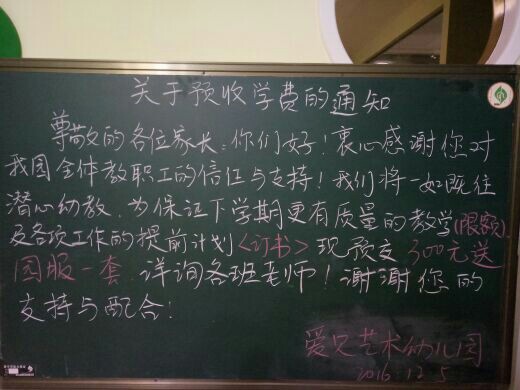 关于预收学费的通知
尊敬的各位家长：你们好！衷心感谢您对
我园全体教职工的信任与支持！我们将一如既往
潜心幼教，为保证下学期更有质量的教学(限额)
及各项工作的提前计划<订书>现预交300元送
园服一套 详询各班老师！谢谢您的
支持与配合！
爱儿艺术幼儿园
2016.12.5